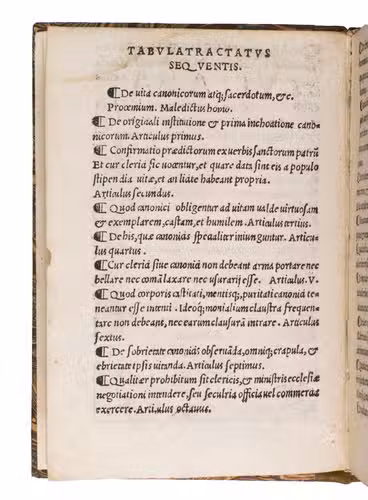 TABVLA TRACTATVS
SEQVENTIS.
¶ De uita canonicorum atq; sacerdotum, &c.
Prooemium. Maledictus homo.
¶ De originali institutione & prima inchoatione cano-
nicorum. Articulus primus.
¶ Confirmatio prædictorum ex uerbis sanctorum patrū
Et cur clerici sic uocentur, et quare data sint eis a populo
stipendia uitæ, et an licite habeant propria.
Articulus secundus.
¶ Quod canonici obligentur ad uitam ualde uirtuosam
& exemplarem, castam, et humilem. Articulus tertius.
¶ De his, quæ canonicis specialiter iniunguntur. Articu-
lus quartus.
¶ Cur clerici siue canonici non debeant arma portare nec
bellare nec comā laxare nec usurarij esse. Articulus. V.
¶ Quod corporis castitati, mentisq; puritati canonici te-
neantur esse intenti. Ideoq; monialium claustra frequen-
tare non debeant, nec earum clausurā intrare. Articulus
sextus.
¶ De sobrietate canonicis obseruāda, omniq; crapula, &
ebrietate ipsis uitanda. Articulus septimus.
¶ Qualiter prohibitum sit clericis, & ministris ecclesiæ
negotiationi intendere, seu secularia officia uel commercia
exercere. Articulus octauus.